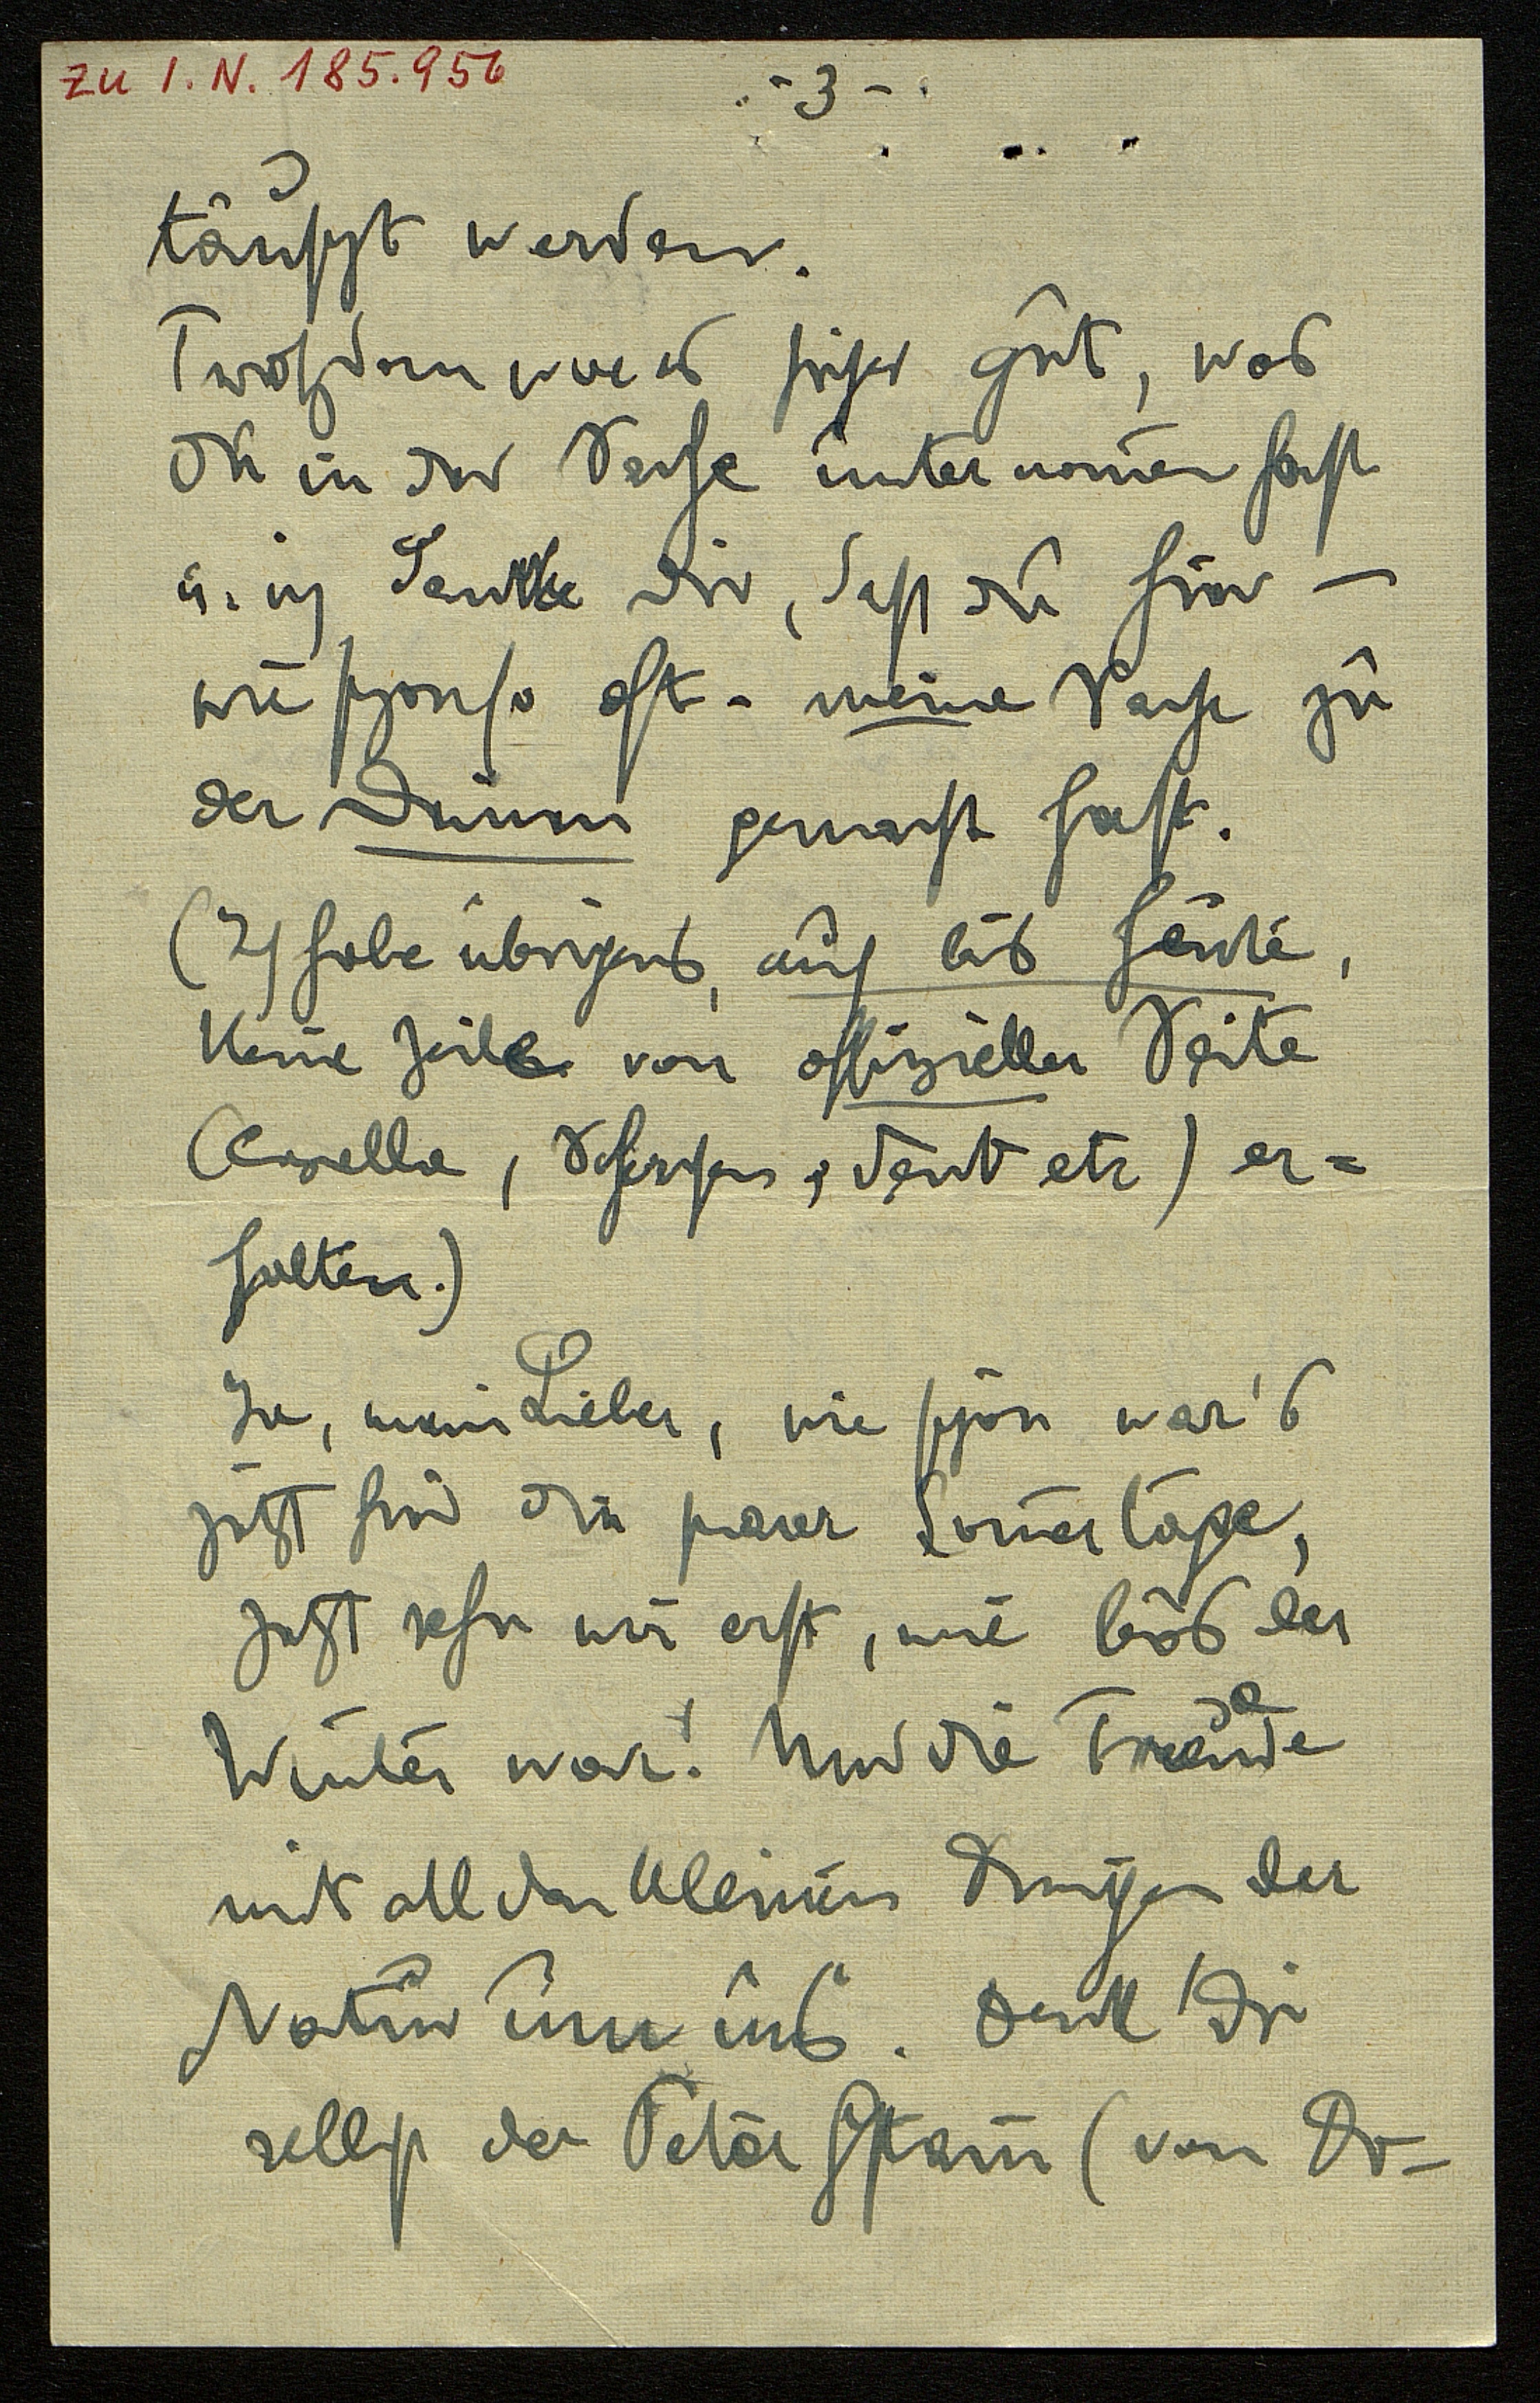 zu I. N. 185.956
- 3 -
täuscht werden.
Trotzdem war es sicher gut, was
Du in der Sache unternommen hast
u. ich danke Dir, dass du hier –
wie schon so oft – meine Sache zu
der Deinen gemacht hast.
(Ich habe übrigens, auch bis heute,
keine Zeile von offizieller Seite
(Casella, Scherchen, Dent etc) er=
halten.)
Ja, mein Lieber, wie schön war's
jetzt sind die paar Sommertage,
jetzt sehn wir erst, wie bös der
Winter war! Und die Freude
mit all den kleinen Dingen der
Natur um uns. Denk Dir
selbst der Peter Stein (von Dr–